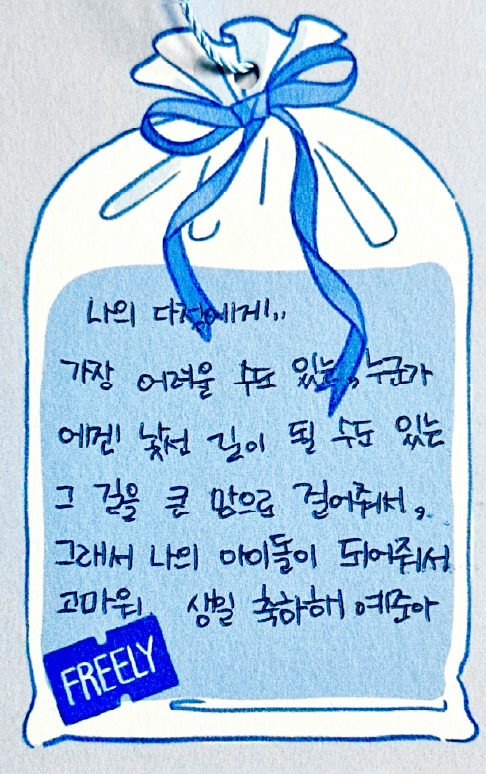 나의 다정에게!..
가장 어려울 수도 있는, 누군가
에겐 낯선 길이 될 수도 있는
그 길을 큰 맘으로 걸어줘서,
그래서 나의 아이돌이 되어줘서
고마워. 생일 축하해 예준아
FREELY